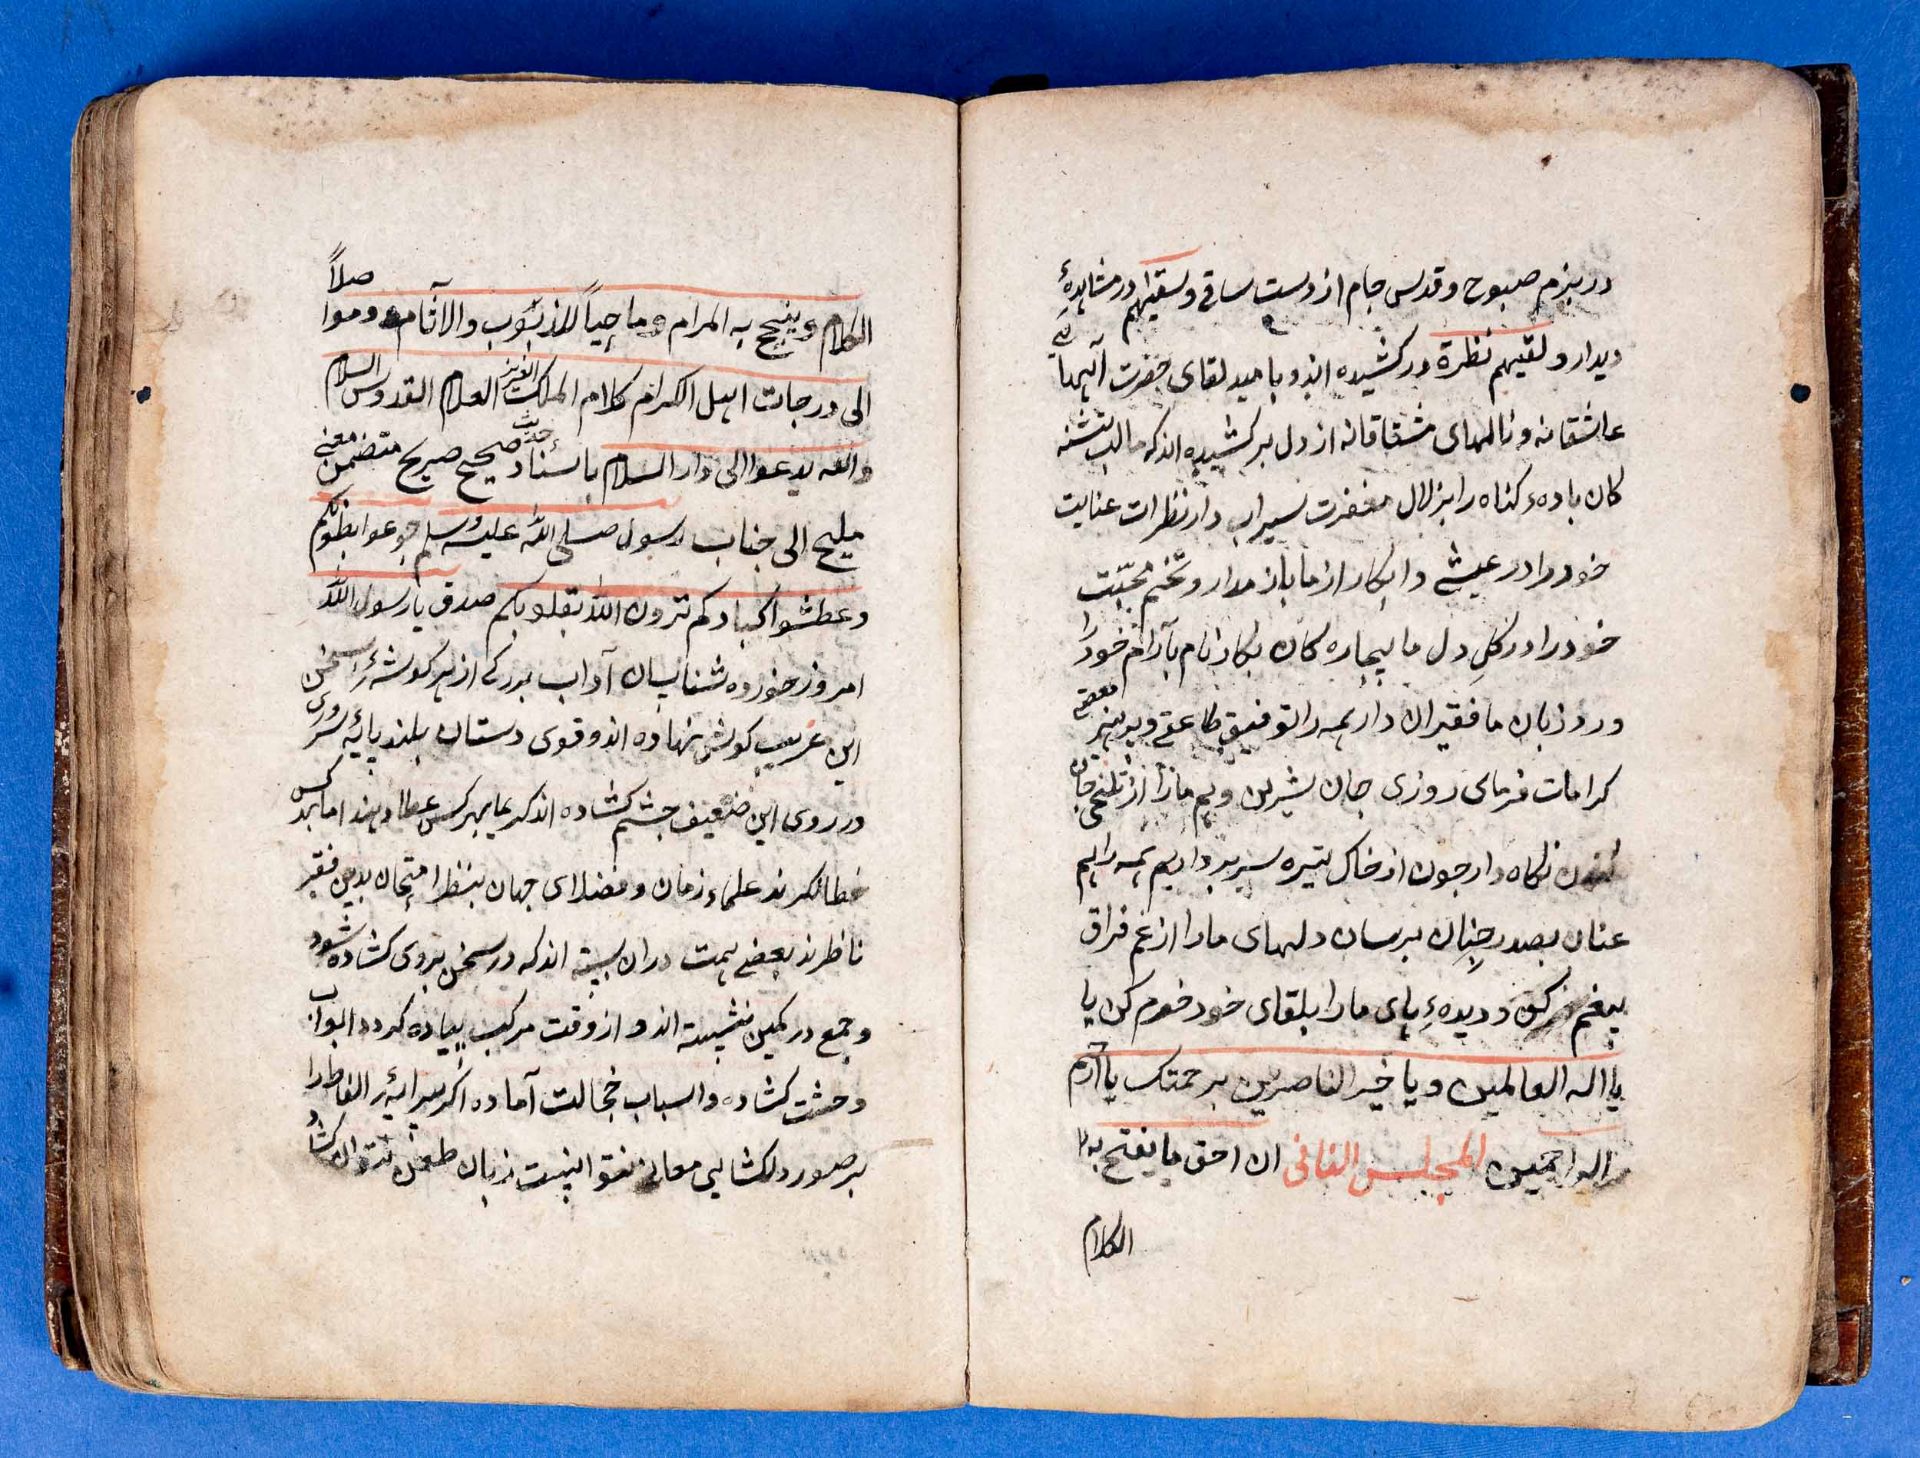 در بزم صبوح و قدس جام از دست ساقی وسقیهم در مشاهدهٔ
دیدار و لقیهم نظرة در کشیده اند و بامید لقای حضرت
عاشقانه و نالهای مشتاقانه از دل بر کشیده اند که ما لب تشنه
کان بادهء کناه را بزلال مغفرت سیراب دار نظرات عنایت
خود را در عیشی و ابکار از ما باز مدار و تخم محبّت
خود را در کل دل ما بیجاره کان بکار نام بآرام خود را
ورد زبان ما فقیران دار همه را توفیق طاعتی و پرهیز
کرامات فرمای روزی جان شیرین و هم ما را از تلخی جان
کندن نکاه دار جون از خاک تیره سر بر داریم همه را هم
عنان بصدر جنان برسان دلهای ما را از غم فراق
بیغم کن و دیدهء بای ما را بلقای خود خرم کن یا
یا اله العالمین و یا خیر الناصرین برحمتک یا ارحم
الراحمین المجلس الثانی ان احق ما یفتح به
الکلام
صلاً
الکلام وینجح به المرام وماحیاً للذنوب والآثام وموا
الی درجات اهل الکرام کلام الملک العزیز العلام القدوس السلام
والله یدعوا الی دار السلام باسناد حدیث صحیح صریح متضمن معنی
ملیح الی جناب رسول صلی الله علیه وسلم جوعوا بطونکم
وعطشوا اکبادکم ترون الله بقلوبکم صدق یا رسول الله
امروز خورده شناسان آداب بزرکی از هر کوشهٔ سخن
این غریب کوش نهاده اند و قوی دستان بلند پایهٔ سروری
در روی این ضعیف چشم کشاده اند کرعا بهر کس عطا دهند اما بر کس
خطا نکیرند علماء زمان و فضلای جهان بنظر امتحان بدین فقیر
ناظرند بعضی همت در ان بسته اند که در سخن بروی کشاده شود
و جمع در کمین نشسته اند و از وقت مرکب بیاده کردد ابواب
وحشت کشاده و اسباب خجالت آماده اکر سرایهٔ الفاظ را
بر صور دلکشایی معانی نتوانست زبان طعن نتوان کشاد